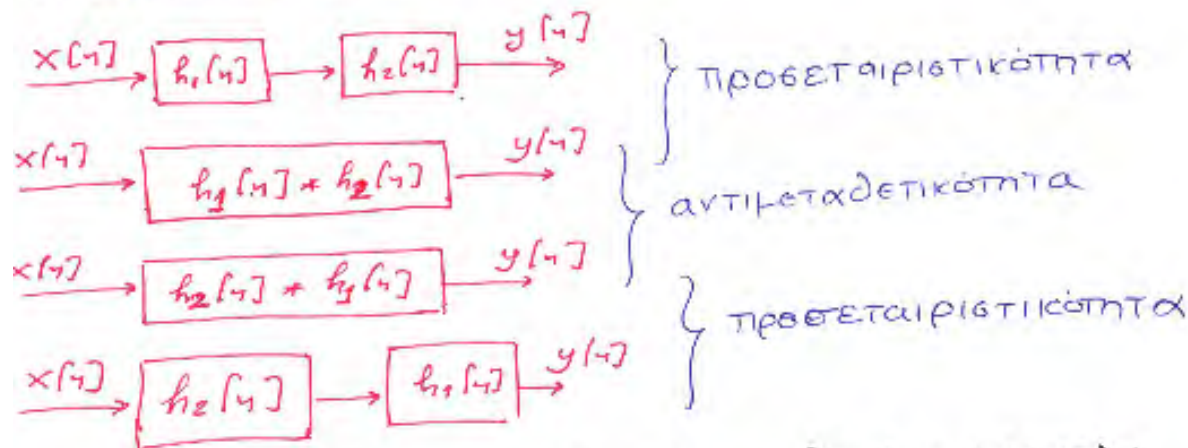 x[n] h₁[n] h₂[n] y[n]
προσεταιριστικότητα
x[n] h₁[n] * h₂[n] y[n]
αντιμεταθετικότητα
x[n] h₂[n] * h₁[n] y[n]
προσεταιριστικότητα
x[n] h₂[n] h₁[n] y[n]